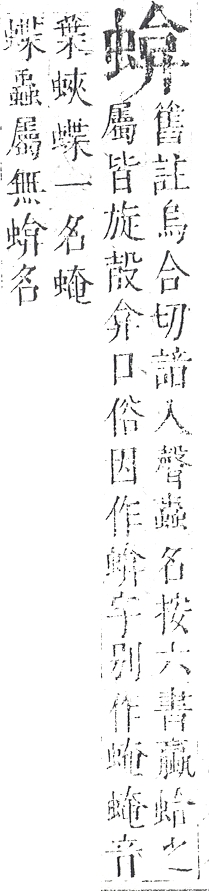 舊註烏合切諳入聲蟲名按六書蠃蛤之
屬皆旋殻弇口俗因作字别作音
葉蛺蝶一名
蝶蟲屬無名